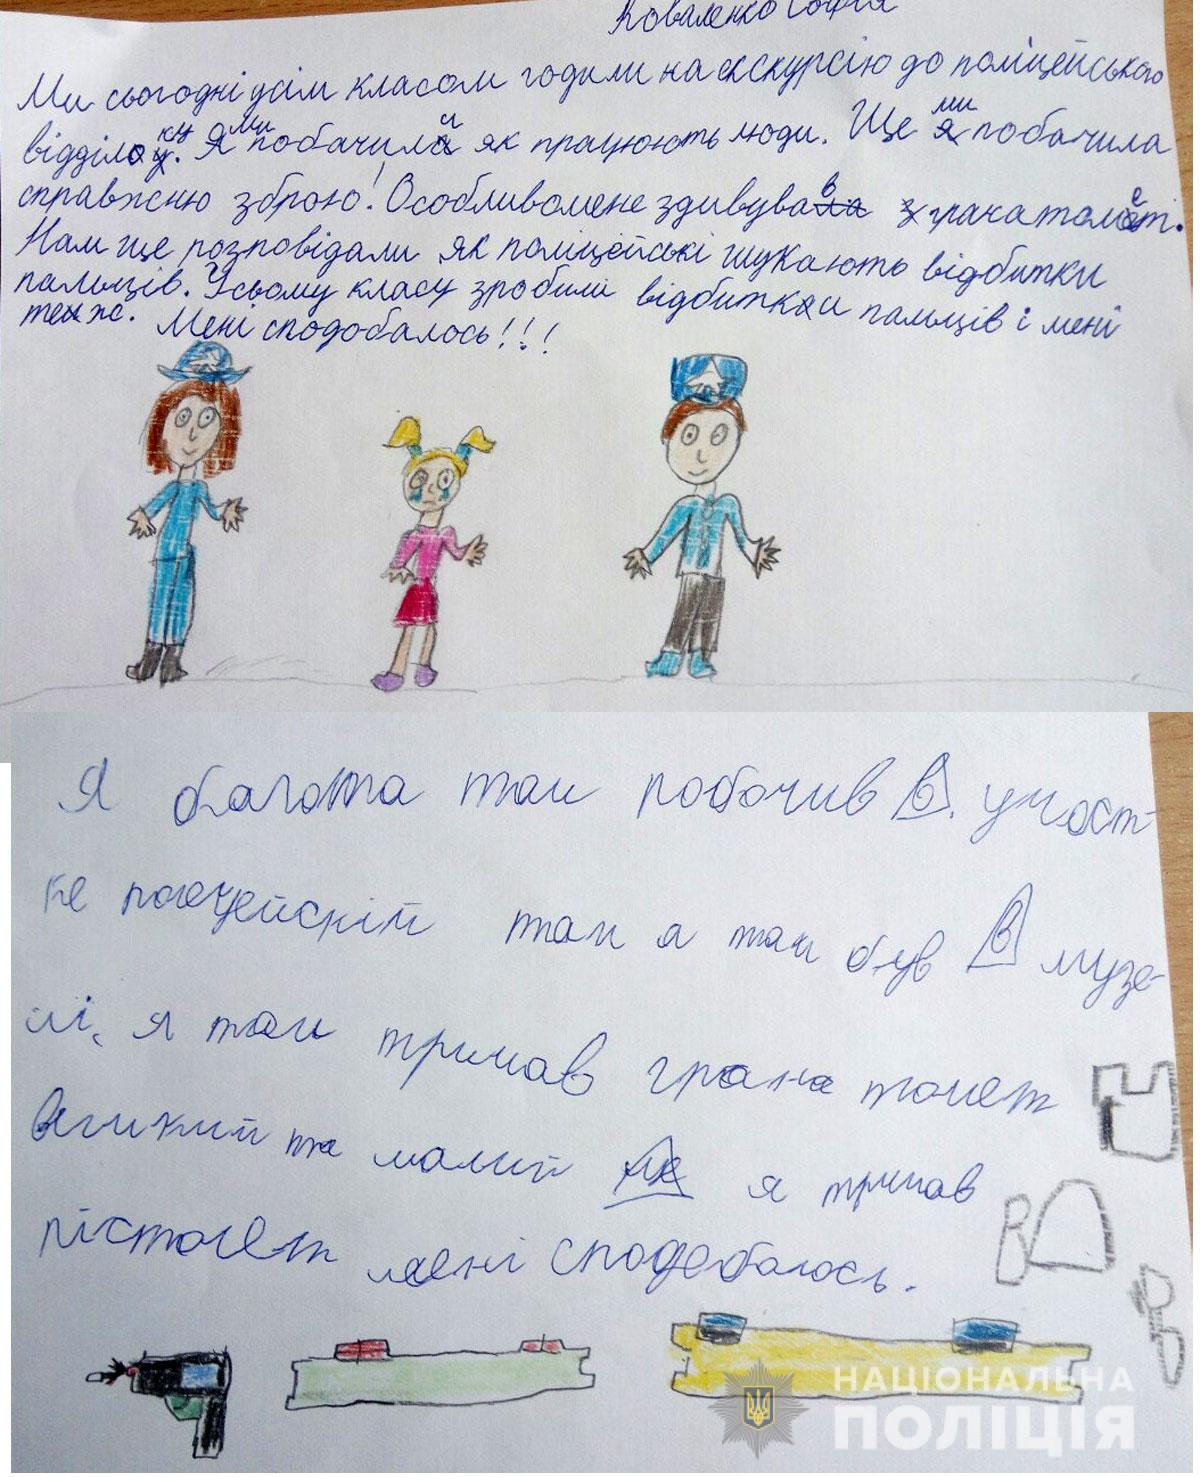 Коваленко Софія
Ми сьогодні усім класом годили на екскурсію до поліцейського
відділку. Ми побачили як працюють люди. Ще ми побачила
справжню зброю! Особливо мене здивував граначатометі.
Нам ще розповідали як поліцейські шукають відбитки
пальців. Усьому класу зробили відбитки пальців і мені
теж. Мені сподобалось!!!
Я багота там побочив в. учост-
ке полецейскій там я там був в музе-
їі, я там тримав грана томет
великий та малий я тримав
пістолет мені сподебалось.
НАЦІОНАЛЬНА
ПОЛІЦІЯ